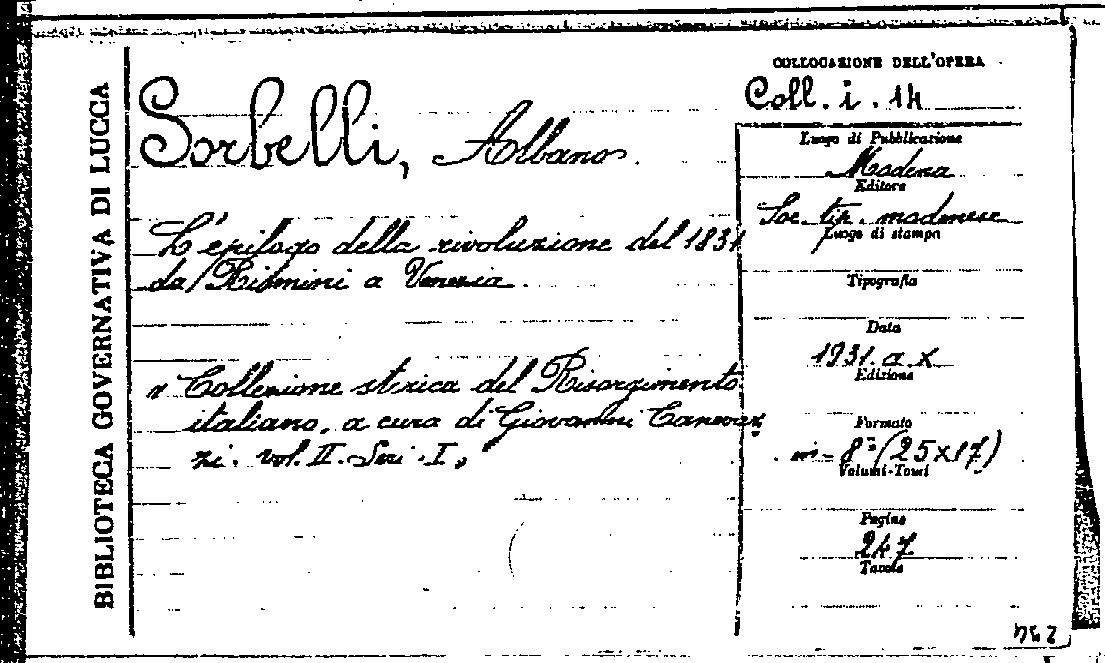 BIBLIOTECA GOVERNATIVA DI LUCCA
Sorbelli, Albano.
L'epilogo della rivoluzione del 1831
da Rimini a Venezia.
"Collezione storica del Risorgimento
italiano, a cura di Giovanni Canevaz
zi. vol. II. Seri. I"
COLLOCAZIONE DELL'OPERA
Coll. i. 14
Luogo di Pubblicazione
Modena
Editore
Soc. tip. modenese
Luogo di stampa
Tipografia
Data
1931. a. X
Edizione
Formato
in-8° (25x17)
Volumi-Tomi
Pagine
247
Tavole